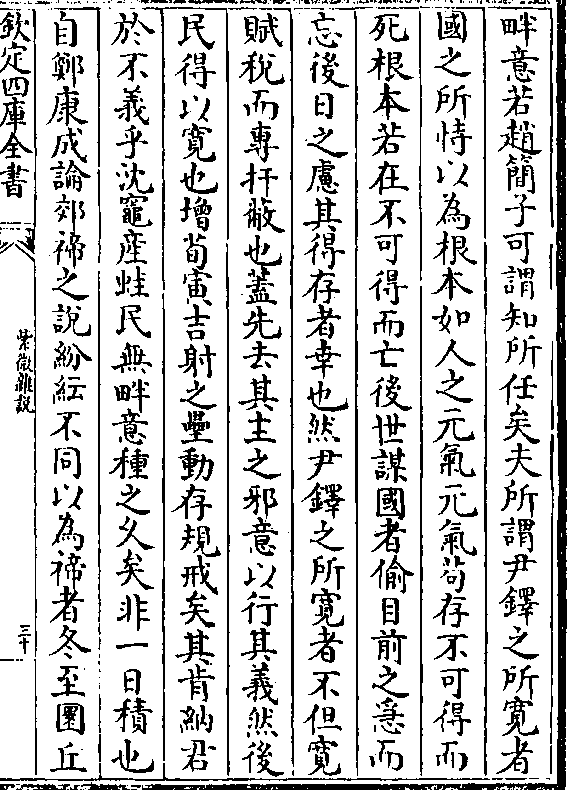 畔意若趙簡子可謂知所任矣夫所謂尹鐸之所寛者
國之所恃以為根本如人之元氣元氣苟存不可得而
死根本若在不可得而亡後世謀國者偷目前之急而
忘後日之慮其得存者幸也然尹鐸之所寛者不但寛
賦稅而專扞蔽也蓋先去其主之邪意以行其義然後
民得以寛也增荀寅吉射之壘動存規戒矣其肯納君
於不義乎沈竈産蛙民無畔意種之久矣非一日積也
自鄭康成論郊禘之說紛紜不同以為禘者冬至圜丘
欽定四庫全書
紫微雜說
三十